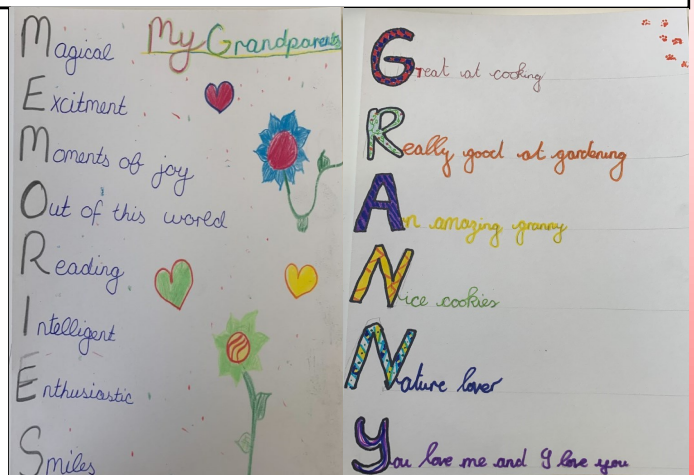 My Grandparents
Magical
Excitment
Moments of joy
Out of this world
Reading
Intelligent
Enthusiastic
Smiles
Great at cooking
Really good at gardening
An amazing granny
Nice cookies
Nature lover
You love me and I love you